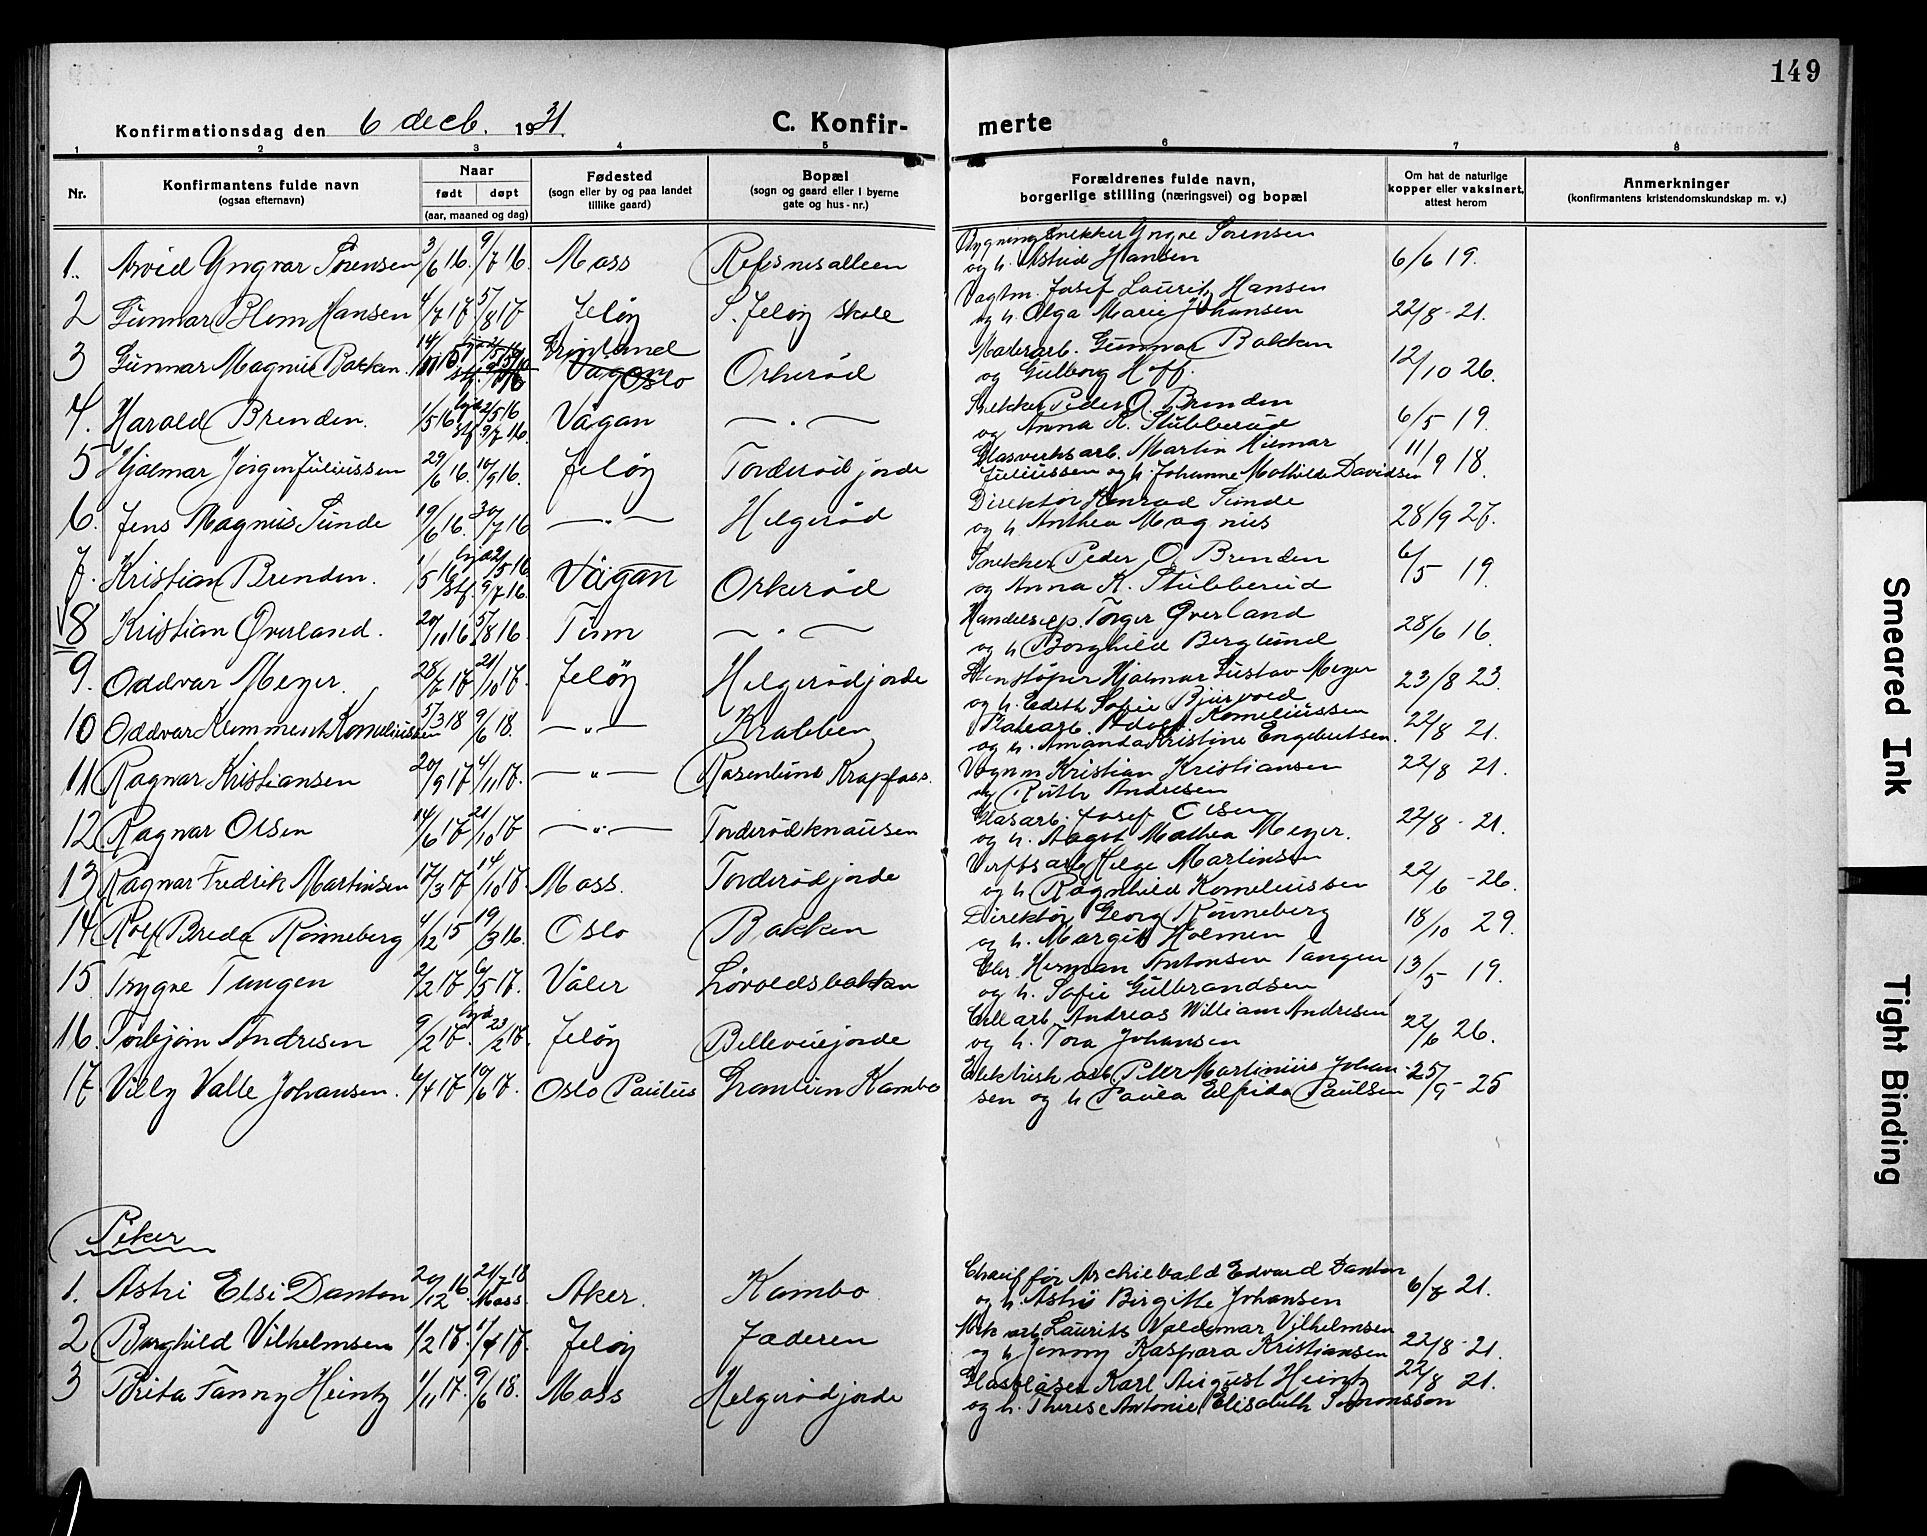 149
Konfirmationsdag den 6 decb. 1931.
C. Konfirmerte
1 2 3 4 5 6 7 8
Nr.
Konfirmantens fulde navn
(ogsaa efternavn)
Naar
født døpt
(aar, maaned og dag)
Fødested
(sogn eller by og paa landet
tillike gaard)
Bopæl
(sogn og gaard eller i byerne
gate og hus-nr.)
Forældrenes fulde navn,
borgerlige stilling (næringsvei) og bopæl
Om hat de naturlige
kopper eller vaksinert,
attest herom
Anmerkninger
(konfirmantens kristendomskundskap m. v.)
1. Arvid Yngvar Sørensen 3/6 16. 9/7 16. Moss Refsnesalleen Bygningsnekker Yngve Sørensen
og h. Astrid Hansen 6/6 19.
2 Gunnar Blom Hansen 4/7 17 5/8 17 Jeløy S. Jeløy skole Vagtm. Josef Laurits Hansen
og h. Olga Marie Johansen 22/8 - 21.
3 Gunnar Magnus Bakken. Oslo Orkerød Malerarb. Gunnar Bakken
og Gulborg Hoff. 12/10 26.
4. Harald Brenden. 1/5 16 hjd. 2/5 16 stf. 9/7 16. Vågan — . — Snekker Peder O. Brenden
og Anna K. Stubberud 6/5 19.
5 Hjalmar Jørgen Juliussen 29/6 16. 10/9 16. Jeløy Torderødjorde Glasverksarb. Martin Hilmar
Juliussen og h. Johanne Mathilde Davidsen 11/9 18.
6. Jens Magnus Sunde 19/6 16. 30/7 16 — " — Helgerød Direktør Konrad Sunde
og h. Anthea Magnus 28/9 27.
7. Kristian Brenden. 1/5 16 hjd. 2/5 16 stf. 9/7 16. Vågan Orkerød Snekker Peder O. Brenden
og Anna K. Stubberud 6/5 19.
8 Kristian Øverland. 20/10 16 5/8 16. Tum — " — Handelsexp. Torger Øverland
og h Borghild Berglund 28/6 16.
9. Oddvar Meyer. 28/7 17 21/10 17. Jeløy Helgerødjorde Stenstøper Hjalmar Gustav Meyer
og h. Edith Sofie Bjurvold 23/8 23.
10 Oddvar Klemment Korneliussen 5/3 18 9/6 18. — " — Krabben Adolf Korneliussen
og h. Amanda Kristine Engebretsen. 22/8 21.
11 Ragnar Kristiansen 20/9 17 4/11 17. — " — Rosenlund Krapfoss. Vognm Kristian Kristiansen
og Ruth Andresen 22/8 21.
12 Ragnar Olsen 14/6 17 21/10 17 — " — Torderødknausen Glasarb. Josef Olsen
og h. Aagot Mathea Meyer. 22/8 - 21.
13 Ragnar Fredrik Martinsen 17/3 17 14/10 17. Moss. Torderødjorde Verftsarb Helge Martinsen
og h. Ragnhild Korneliussen 22/6 - 26.
14 Rolf Breda Rønneberg 4/12 15 19/3 16. Oslo Bakken Direktør Georg Rønneberg
og h. Margit Holmen 18/10 29.
15 Trygve Tangen 2/2 17 6/5 17. Våler Løvoldsbakken Herman Antonsen Tangen
og h. Sofie Gulbrandsen 13/5 19.
16. Torbjørn Andresen 9/2 17. hjd 23/2 17. Jeløy Bellevuejorde Cell arb. Andreas William Andresen
og h. Tora Johansen 22/6 26.
17 Villy Valle Johansen. 6/4 17 10/6 17. Oslo Paulus Granlien Kambo Elektrisk arb. Peter Martinius Johansen
og h Paula Elfrida Paulsen 25/9 - 25
Piker
1. Astri Elsi Danton 20/12 16 21/7 18 Moss. Aker. Kambo Chauffør Archiebald Edvard Danton
og h. Astri Birgitte Johansen 6/8 21.
2 Borghild Vilhelmsen 1/2 17. 1/4 17. Jeløy Jaderen arb Laurits Valdemar Vilhelmsen
og h Jenny Kaspara Kristiansen 22/8 - 21.
3 Brita Fanny Heintz 1/11 17. 9/6 18. Moss Helgerødjorde Glasblåser Karl August Heintz
og h. Therese Antonie Elisabeth Simonsson 22/8 21.
Smeared Ink
Tight Binding